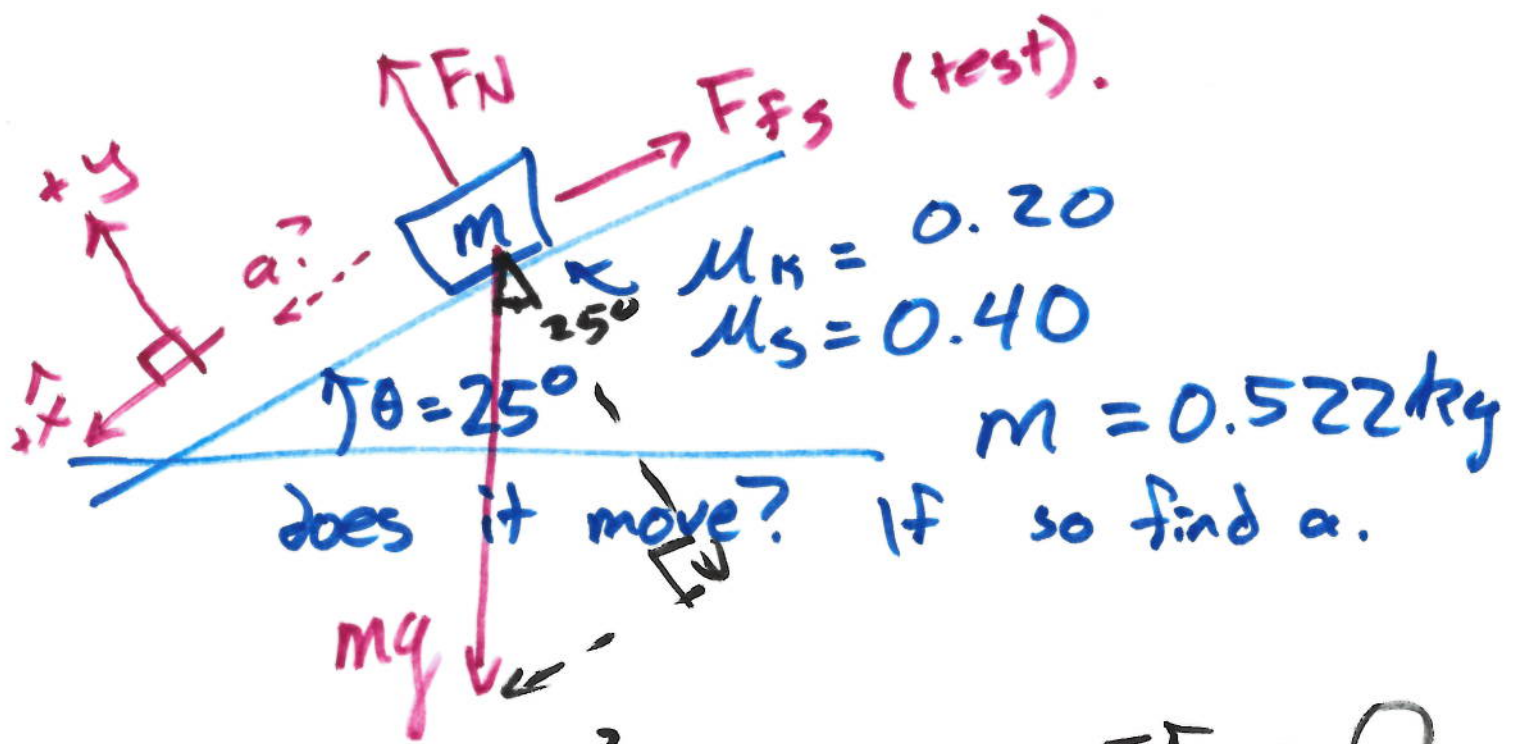 FN
Ffs (test).
+y
a?
m
μk = 0.20
μs = 0.40
25°
θ = 25°
+x
m = 0.522kg
does it move? If so find a.
mg